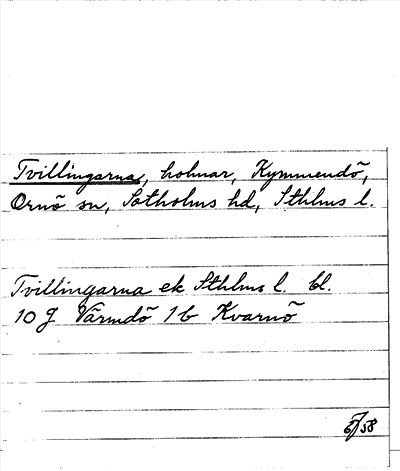 Tvillingarna, holmar, Kymmendö,
Ornö sn, Sotholms hd, Sthlms l.
Tvillingarna ek Sthlms l. bl.
10 J Värmdö 1 b Kvarnö
/58